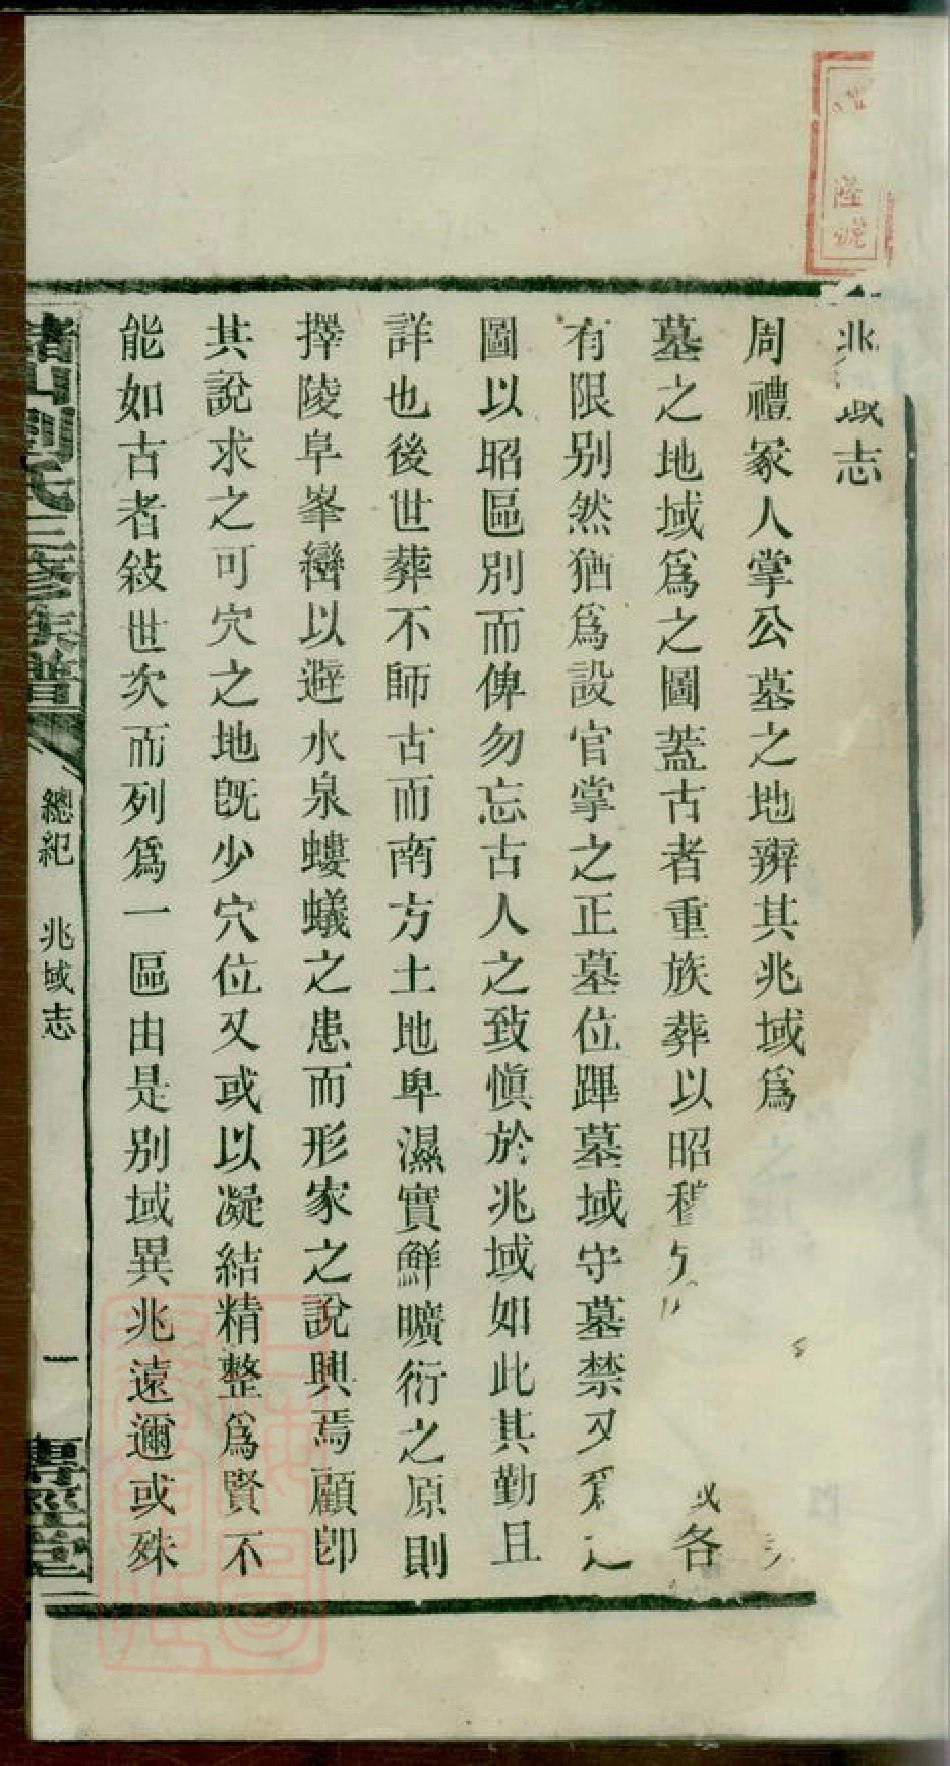 兆域志
周禮冢人掌公墓之地辨其兆域爲
墓之地域爲之圖蓋古者重族葬以昭穆 各
有限别然猶爲設官掌之正墓位蹕墓域守墓禁又爲之
圖以昭區別而俾勿忘古人之致愼於兆域如此其勤且
詳也後世葬不師古而南方土地卑濕實鮮曠衍之原則
擇陵阜峯巒以避水泉螻蟻之患而形家之說興焉顧卽
其說求之可穴之地旣少穴位又或以凝結精整爲賢不
能如古者敍世次而列爲一區由是别域異兆遠邇或殊
劉氏三修族譜
總紀 兆域志
一